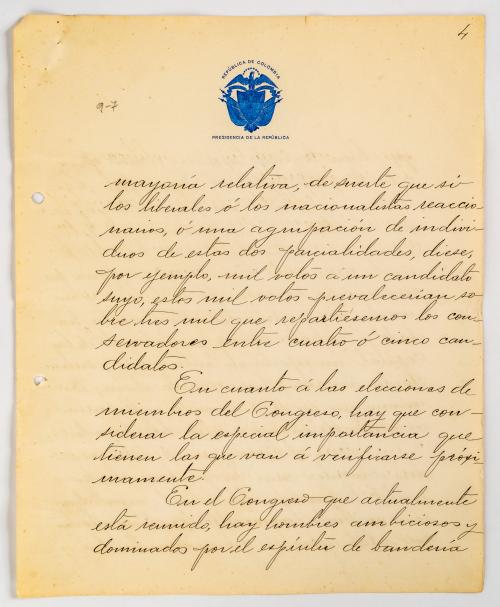 4
REPÚBLICA DE COLOMBIA
9-7
PRESIDENCIA DE LA REPÚBLICA
mayoría relativa, de suerte que si
los liberales ó los nacionalistas reaccio-
narios, ó una agrupación de indivi-
duos de estas dos parcialidades, diese,
por ejemplo, mil votos á un candidato
suyo, estos mil votos prevalecerían so-
bre tres mil que repartiesemos los con-
servadores entre cuatro ó cinco can-
didatos.
En cuanto á las elecciones de
miembros del Congreso, hay que con-
siderar la especial importancia que
tienen las que van á verificarse próxi-
mamente.
En el Congreso que actualmente
está reunido, hay hombres ambiciosos y
dominados por el espíritu de bandería